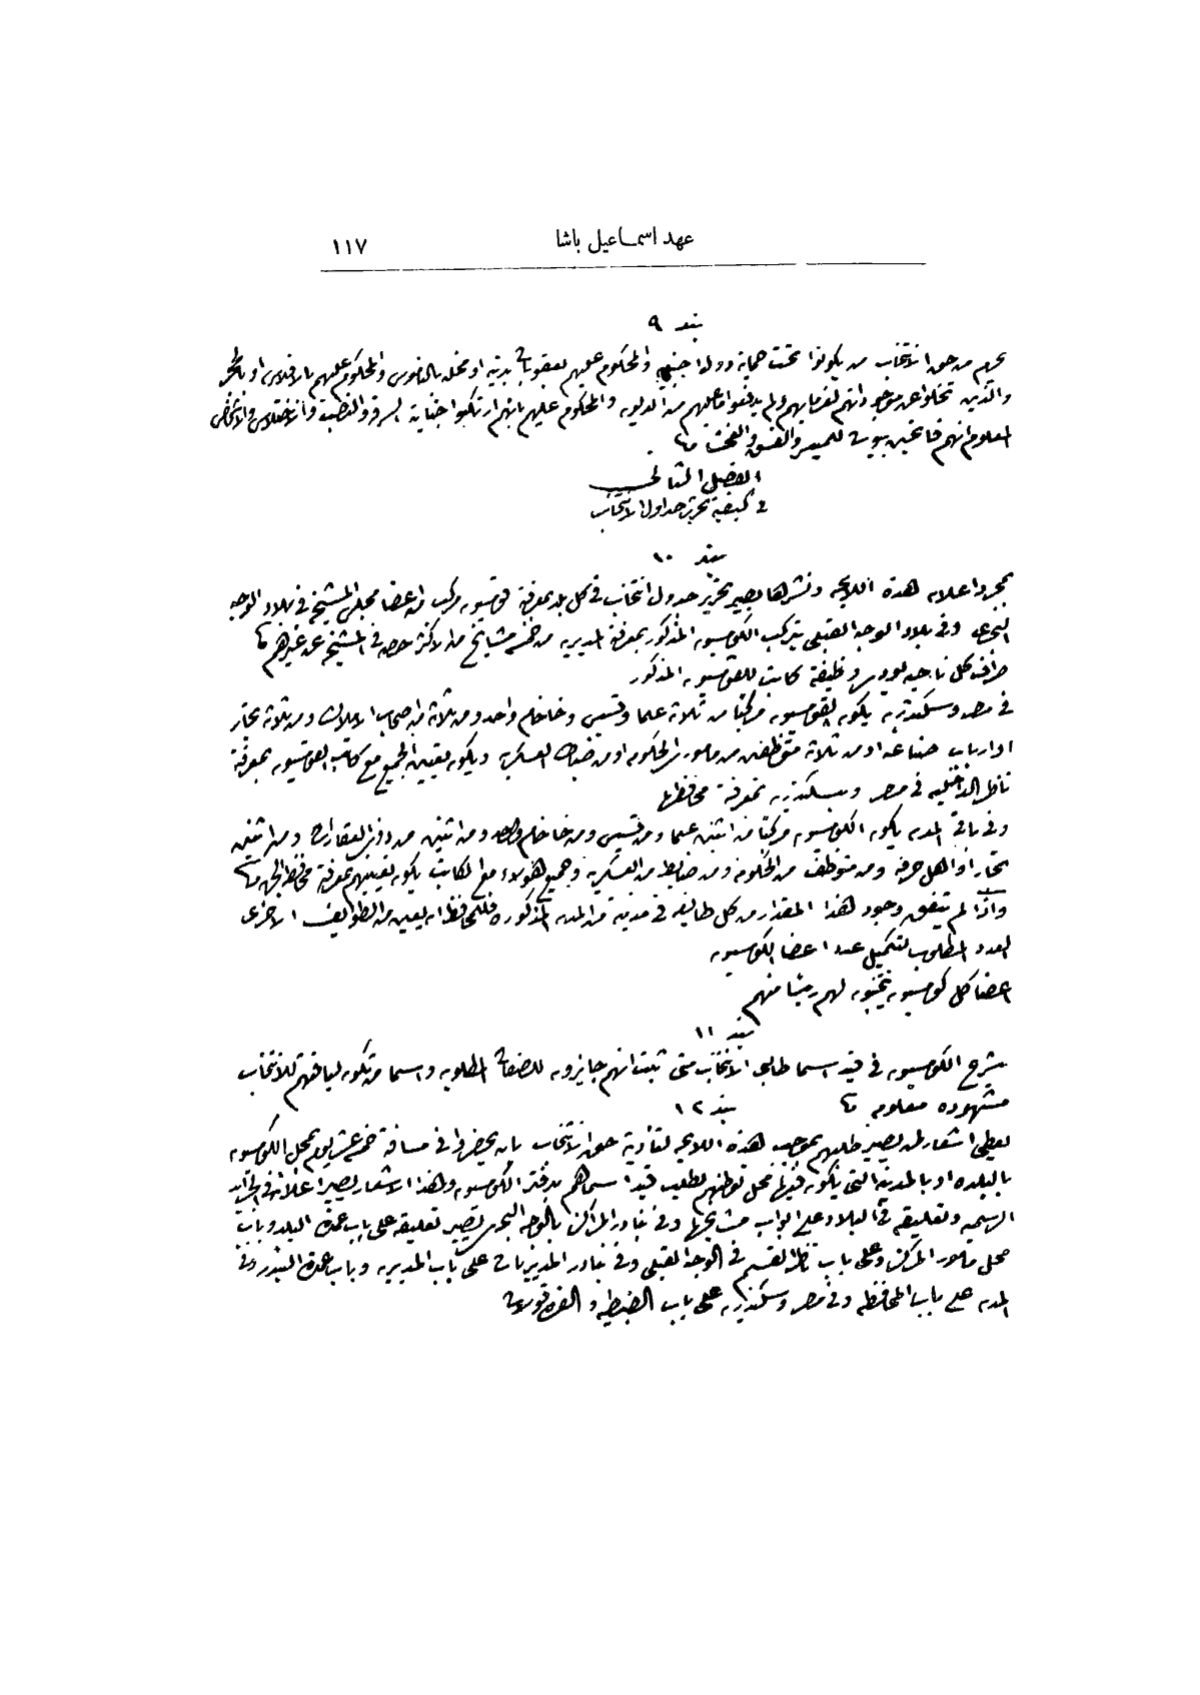 عهد اسماعيل باشا ١١٧
بند ٩
يحرم من حق الانتخاب من يكونوا تحت حماية دولة اجنبيه والمحكوم عليهم بعقوبات بدنيه او مخله بالناموس والمحكوم عليهم بالافلاس او بالحجر
والذين تخلوا عن موجوداتهم لغرمايهم ولم يدفعوا ما عليهم من الديون والمحكوم عليهم بانهم ارتكبوا جناية السرقه والنصب والاختلاس والاشخاص
المعلوم انهم فاتحين بيوت للميسر والفسق والفحش
الفصل الثالث
في كيفية تحرير جداول الانتخاب
بند ١٠
بمجرد اعلان هذه اللايحه ونشرها يصير تحرير جدول انتخاب في كل بلد بمعرفة قومسيون مركب من اعضا مجلس المشيخه في بلاد الوجه
البحرى وفي بلاد الوجه القبلى يتركب الكومسيون المذكور بمعرفة المديريه من خمسه مشايخ من الاكثر حصه في المشيخه عن غيرهم
صراف كل ناحيه يودى وظيفة كاتب للقومسيون المذكور
في مصر وسكندريه يكون القومسيون مركبًا من ثلاثة علما وقسيس وخاخام واحد ومن ثلاثة من اصحاب الاملاك ومن ثلاثة تجار
او ارباب صناعه او من ثلاثة متوظفين من مامورى الحكومه او من ضباط العسكريه ويكون تعيين الجميع مع كاتب القومسيون بمعرفة
ناظر الداخليه في مصر وبسكندريه بمعرفة محافظها
وفي باقي المدن يكون الكومسيون مركبًا من اثنين علما ومن قسيس ومن خاخام واحد ومن اثنين من ذوى العقارات ومن اثنين
تجار او اهل حرفه ومن متوظف من الحكومه ومن ضابط من العسكريه وجميع هولاء مع الكاتب يكون تعيينهم بمعرفة محافظ الجهه
واذا لم يتفق وجود هذا المقدار من كل طايفه في مدينة من المدن المذكوره فللمحافظ ان يعين من الطوايف الاخرى
العدد المطلوب لتكميل عدد اعضا الكومسيون
اعضا كل كومسيون ينتخبون لهم ريسًا منهم
بند ١١
يشرع الكومسيون في قيد اسما طالبى الانتخاب متى ثبت انهم حايزون للصفات المطلوبه واسما من تكون لياقتهم للانتخاب
مشهوده معلومه
بند ١٢
يعطى اشعار لمن يصير طلبهم بموجب هذه اللايحه لتأدية حق الانتخاب بان يحضروا في مسافة خمسة عشر يوم بمحل الكومسيون
بالبلده او بالمدينه التى يكون فيها محل توطنهم لطلب قيد اسماهم بدفتر الكومسيون وهذا الاشعار يصير اعلانه في الجرايد
الرسميه وتعليقه في البلاد على ابواب مشايخها وفي بنادر المراكز بالوجه البحرى يصير تعليقه على باب عمدة البلد وباب
محل مامور المركز وعلى باب ناظر القسم في الوجه القبلى وفي بنادر المديريات على باب المديريه وباب عمدة البندر وفي
المدن على باب المحافظه وفي مصر وسكندريه على باب الضبطيه و القره قولات